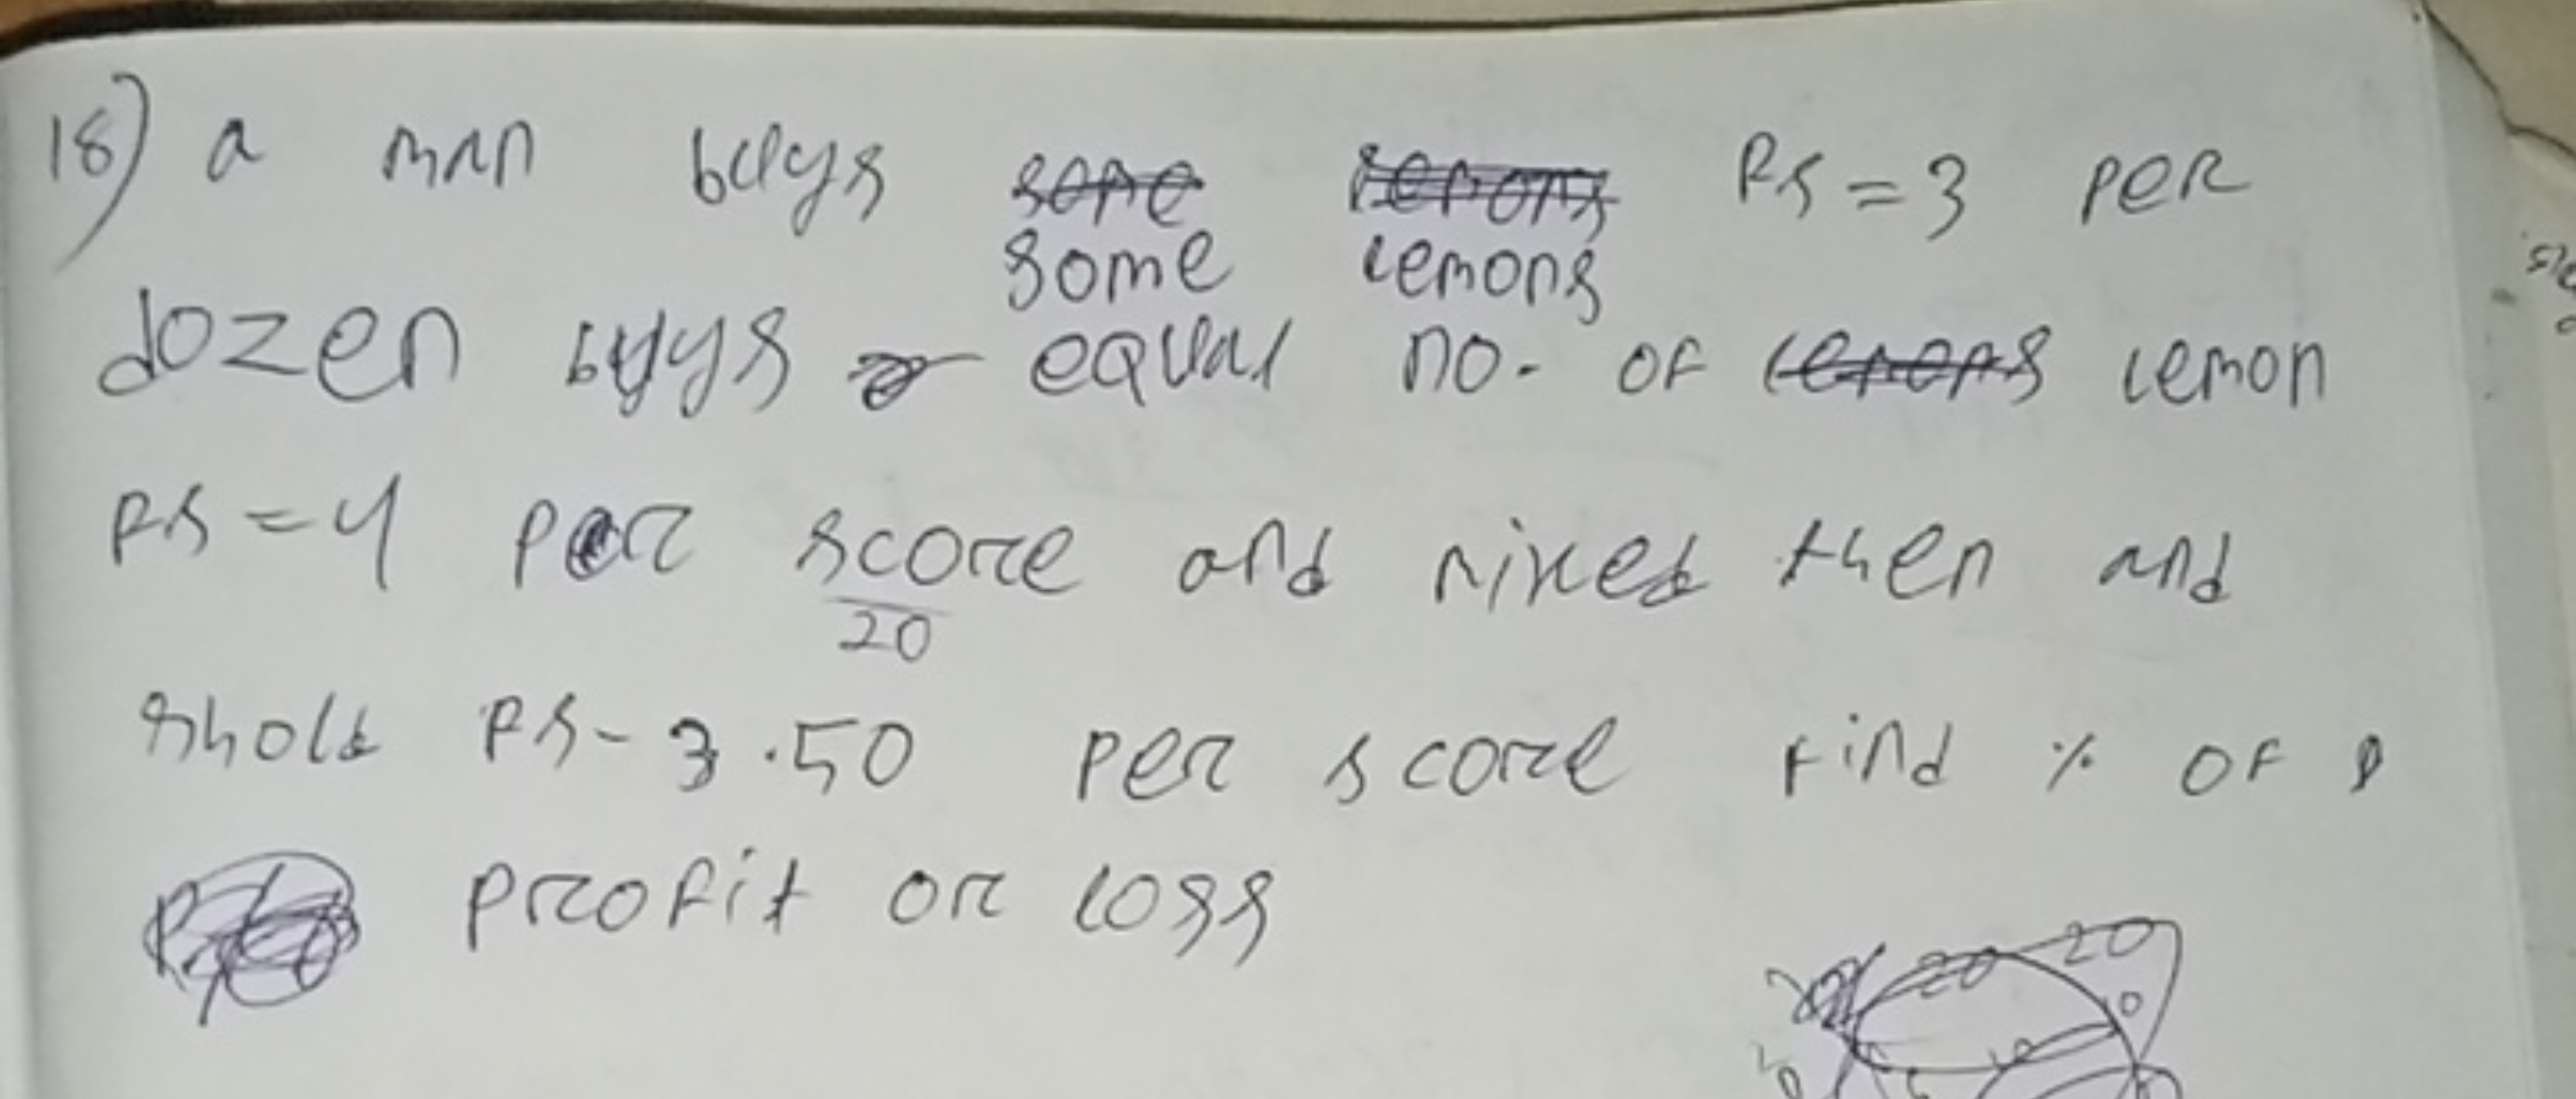 18) a man buys Rs=3 per
some lemons
dozen buys equal no. of lemon
Rs=4 per score and mixed then and
20
shold Rs-3.50 per score find % of
profit or loss
20 20